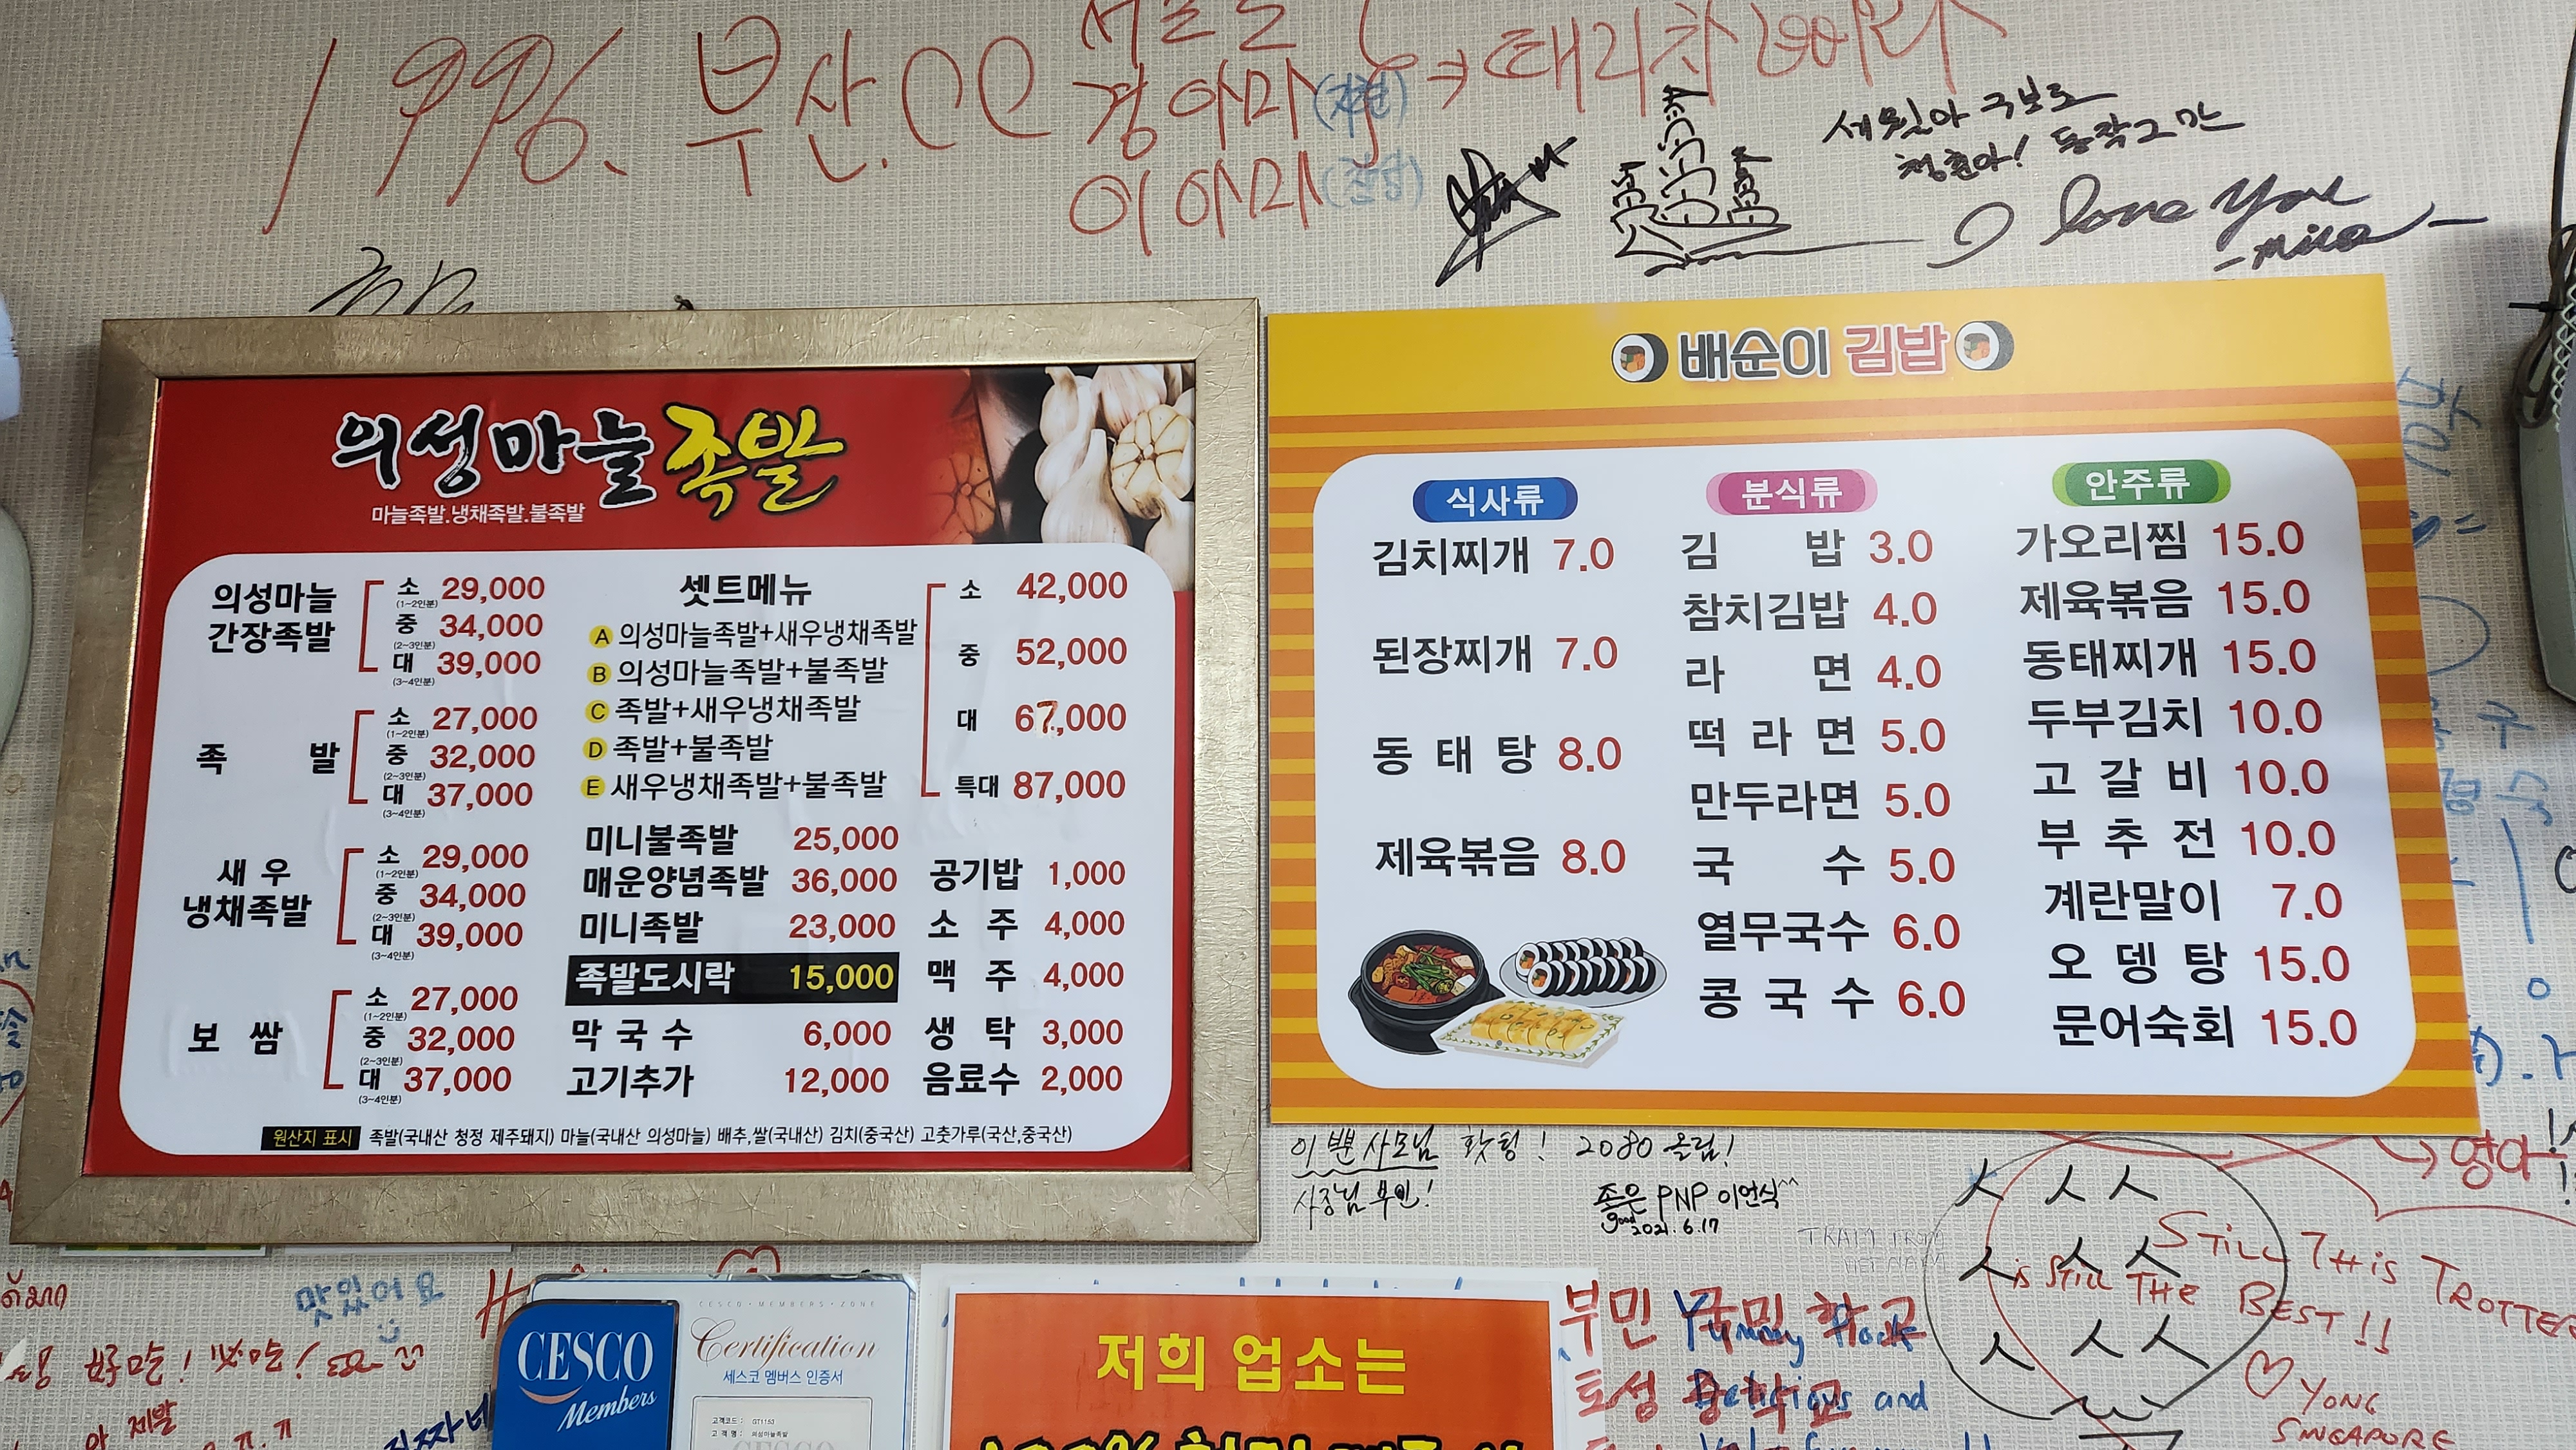 1996. 부산.
경아마
이아마
세월아 구보로
청춘아! 동작그만
I love you
의성마늘족발
마늘족발.냉채족발.불족발
의성마늘 간장족발
소 (1~2인분) 29,000
중 (2~3인분) 34,000
대 (3~4인분) 39,000
족 발
소 (1~2인분) 27,000
중 (2~3인분) 32,000
대 (3~4인분) 37,000
새 우 냉채족발
소 (1~2인분) 29,000
중 (2~3인분) 34,000
대 (3~4인분) 39,000
보 쌈
소 (1~2인분) 27,000
중 (2~3인분) 32,000
대 (3~4인분) 37,000
셋트메뉴
A 의성마늘족발+새우냉채족발
B 의성마늘족발+불족발
C 족발+새우냉채족발
D 족발+불족발
E 새우냉채족발+불족발
소 42,000
중 52,000
대 67,000
특대 87,000
미니불족발 25,000
매운양념족발 36,000
미니족발 23,000
족발도시락 15,000
막 국 수 6,000
고기추가 12,000
공기밥 1,000
소 주 4,000
맥 주 4,000
생 탁 3,000
음료수 2,000
원산지 표시 족발(국내산 청정 제주돼지) 마늘(국내산 의성마늘) 배추,쌀(국내산) 김치(중국산) 고춧가루(국산,중국산)
배순이 김밥
식사류
김치찌개 7.0
된장찌개 7.0
동 태 탕 8.0
제육볶음 8.0
분식류
김 밥 3.0
참치김밥 4.0
라 면 4.0
떡 라 면 5.0
만두라면 5.0
국 수 5.0
열무국수 6.0
콩 국 수 6.0
안주류
가오리찜 15.0
제육볶음 15.0
동태찌개 15.0
두부김치 10.0
고 갈 비 10.0
부 추 전 10.0
계란말이 7.0
오 뎅 탕 15.0
문어숙회 15.0
이쁜 사모님 홧팅! 2080 올림!
사장님 부인!
좋은 PNP 이언식^^
good 2021. 6.17
영아!!
맛있어요
STILL THIS TROTTER
IS STILL THE BEST!!
♡ YONG
SINGAPORE
CESCO
Members
CESCO·MEMBERS·ZONE
Certification
세스코 멤버스 인증서
고객코드 : GT1153
고 객 명 : 의성마늘족발
저희 업소는
부민 국민학교
Yummy
토성 중학교
Delicious and
제발